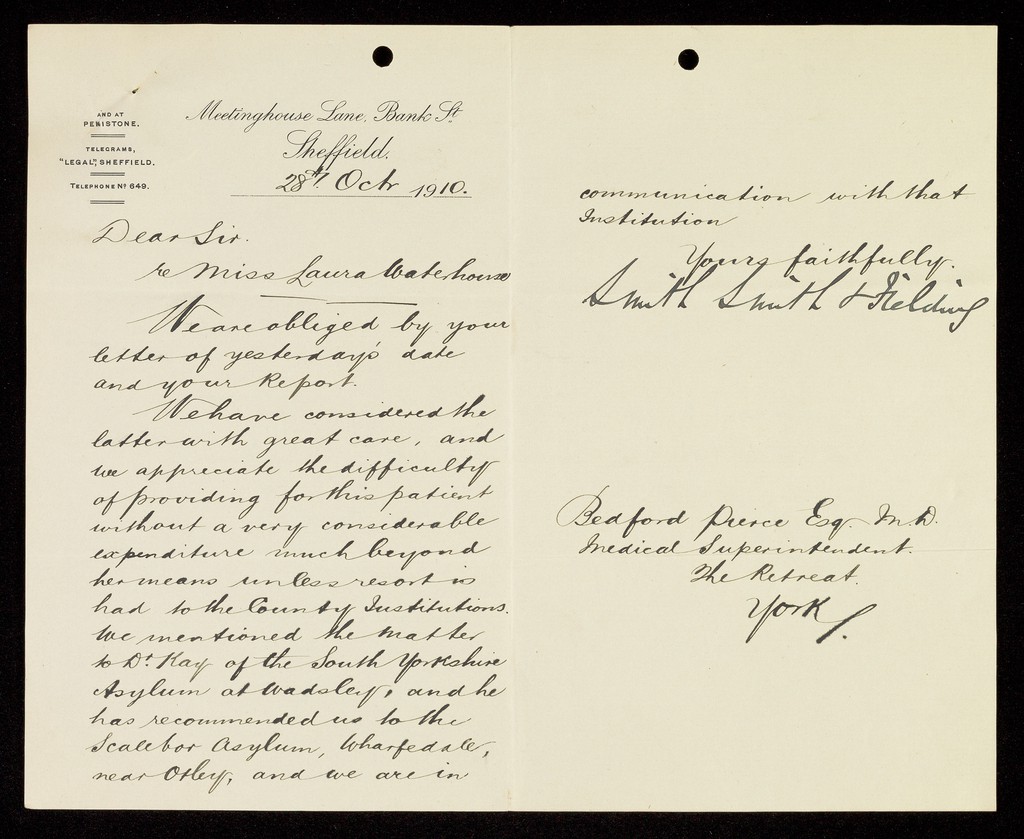 AND AT
PENISTONE.
TELEGRAMS,
"LEGAL", SHEFFIELD.
TELEPHONE Nº 649.
Meetinghouse Lane, Bank St.
Sheffield.
28th Octr 1910.
Dear Sir.
re Miss Laura Waterhouse
We are obliged by your
letter of yesterday's date
and your Report.
We have considered the
latter with great care, and
we appreciate the difficulty
of providing for this patient
without a very considerable
expenditure much beyond
her means unless resort is
had to the County Institutions.
We mentioned the matter
to Dr. Kay of the South Yorkshire
Asylum at Wadsley, and he
has recommended us to the
Scalebor Asylum, Wharfedale,
near Otley, and we are in
communication with that
Institution
Yours faithfully.
Smith Smith & Fielding
Bedford Pierce Esq. M.D.
Medical Superintendent.
The Retreat.
York.